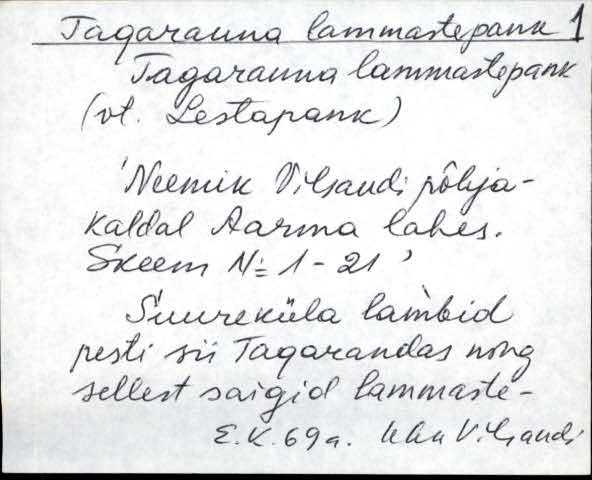 Tagaranna lammastepank 1
Tagaranna lammastepank
(vt. Lestapank)
'Neemik Vilsandi põhja-
kaldal Aarma lahes.
Skeem № 1 - 21'
Suureküla lambid
pesti sii Tagarandas ning
sellest saigid lammaste-
E.K. 69a. Vilsandi